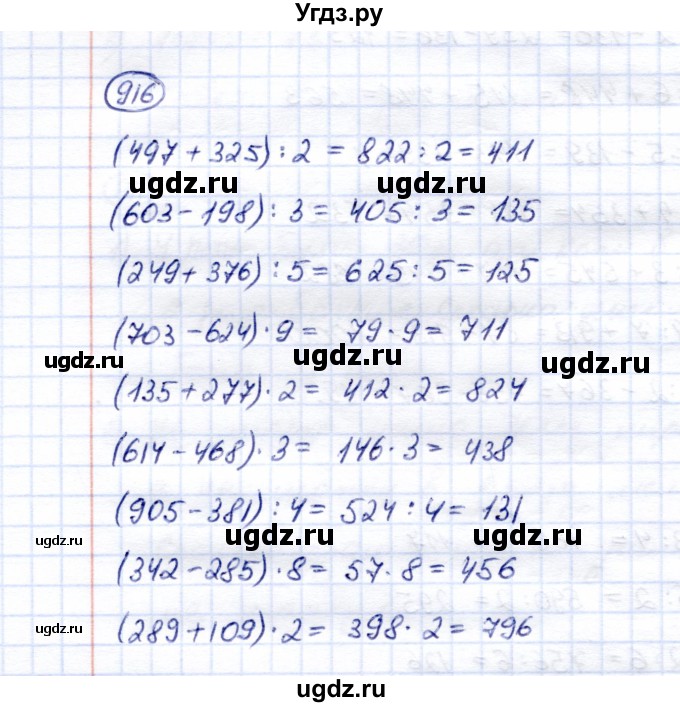 Угдз.ру
916
(497 + 325) : 2 = 822 : 2 = 411
ugdz.ru ugdz.ru
(603 - 198) : 3 = 405 : 3 = 135
(249 + 376) : 5 = 625 : 5 = 125
ugdz.ru ugdz.ru
(703 - 624) · 9 = 79 · 9 = 711
ugdz.ru ugdz.ru ugdz.ru
(135 + 277) · 2 = 412 · 2 = 824
(614 - 468) · 3 = 146 · 3 = 438
(905 - 381) : 4 = 524 : 4 = 131
ugdz.ru ugdz.ru ugdz.ru
(342 - 285) · 8 = 57 · 8 = 456
(289 + 109) · 2 = 398 · 2 = 796
ugdz.ru
ugdz.ru